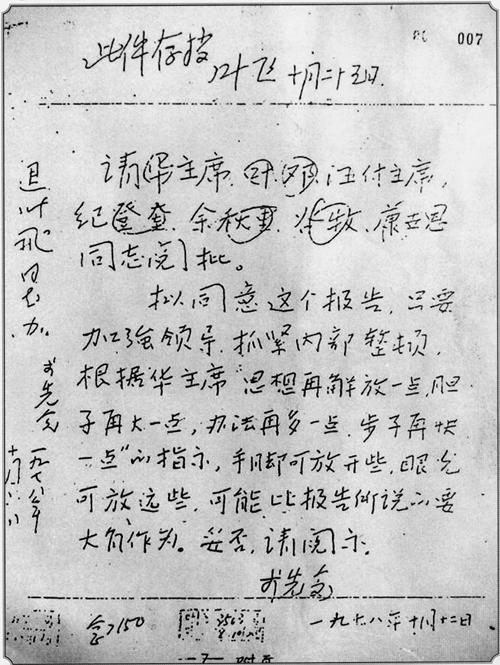 007
此件存档
叶飞 十月二十五日.
请华主席、叶、邓、汪付主席,
纪登奎、余秋里、谷牧、康世恩
同志阅批。
拟同意这个报告,只要
加強领导,抓紧内部整顿,
根据华主席"思想再解放一点,胆
子再大一点,办法再多一点,步子再快
一点"的指示,手脚可放开些,眼光
可放远些,可能比报告所说的要
大有作为。妥否,请阅示。
李先念
一九七八年十月十二日
退叶飞同志办。
李先念
一九七八年